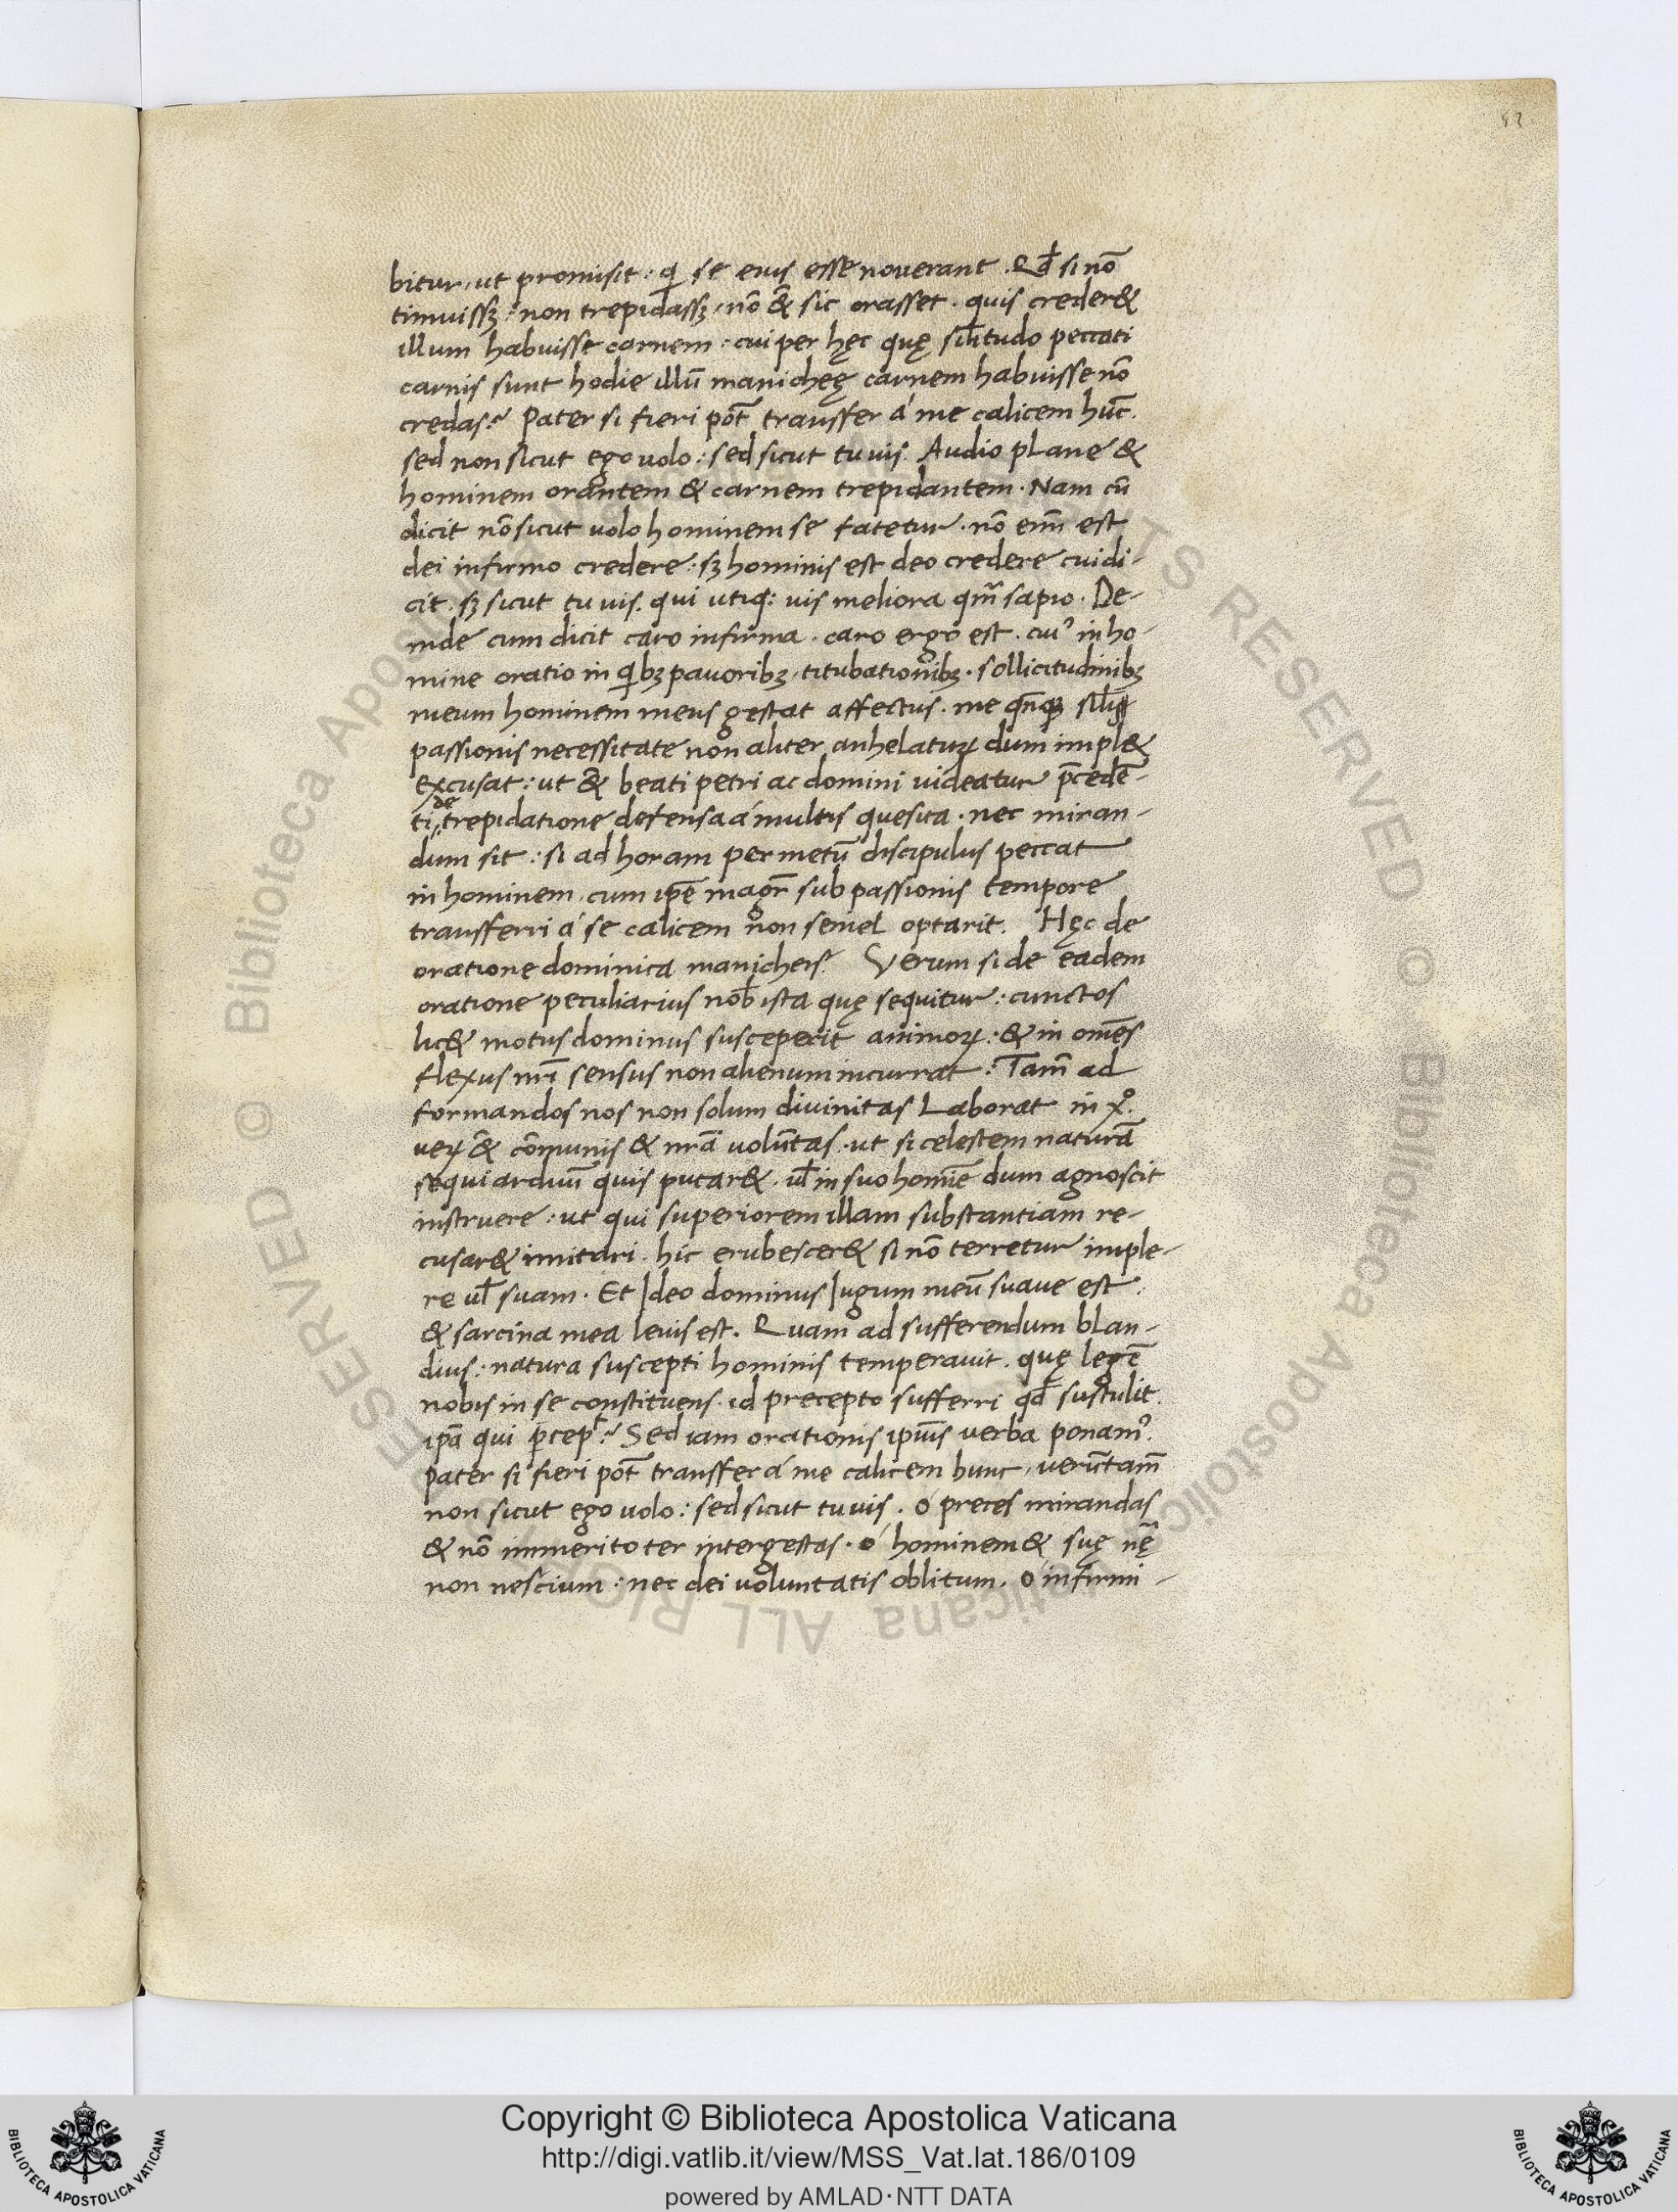 52
bitur, ut promisit: qi se eius esse nouerant. Qd̄ si nō
timuissꝫ: non trepidassꝫ, nō &̄ sic orasset. quis creder&
illum habuisse carnem: cui per hęc quę sil̄itudo peccati
carnis sunt hodie illū manichęę carnem habuisse nō
credas? Pater si fieri pōt transfer á me calicem hūc.
sed non sicut ego uolo: sed sicut tu uis. Audio plane &
hominem orantem & carnem trepidantem. Nam cū
dicit nō sicut uolo hominem se fatetur. nō enī est
dei infirmo credere: sꝫ hominis est deo credere cui di-
cit. sꝫ sicut tu uis. qui utiq: uis meliora qm̄ sapio. De-
inde cum dicit caro infirma. caro ergo est. cuiꝰ in ho-
mine oratio in qibꝫ pauoribꝫ, titubationibꝫ. sollicitudinibꝫ
meum hominem meus gestat affectus. me
passionis necessitate non aliter anhelaturꝫ dum impl&
excusat: ut &̄ beati petri ac domini uideatur p̄cedē-
ti de trepidatione defensa á multis quesita. nec miran-
dum sit: si ad horam per metū discipulus peccat
in hominem. cum ip̄e magr̄ sub passionis tempore
transferri á se calicem non semel optarit. Hęc de
oratione dominica manicheis? Verum si de eadem
oratione peculiarius nob̄ ista quę sequitur: cunctos
lic& motus dominus susceperit animoꝝ: & in om̄es
flexus nr̄i sensus non alienum incurrat: Tam̄ ad
formandos nos non solum divinitas laborat in xº.
ueꝝ &̄ cōmunis & nrā volūtas. ut si celestem naturā
sequi arduū quis putar&. ul̄ in suo homīe dum agnoscit
instruere: ut qui superiorem illam substantiam re-
cusar& imitari. hic erubescer& si nō terretur imple-
re ul̄ suam. Et Ideo dominus Iugum meū suaue est:
& sarcina mea leuis est. Quam ad sufferendum blan-
dius: natura suscepti hominis temperauit. quę legē
nobis in se constituens. id precepto sufferri qd̄ sustulit.
ipā qui p̄cepᵗ? Sed iam orationis ipīus verba ponamꝰ.
Pater si fieri pōt transfer á me calicem hunc, uerūtam̄
non sicut ego uolo: sed sicut tu uis. ó preces mirandas
& nō immerito ter intergestas. ó hominem & suę n̄ę
non nescium: nec dei voluntatis oblitum. ó infirmi-
Copyright © Biblioteca Apostolica Vaticana
http://digi.vatlib.it/view/MSS_Vat.lat.186/0109
powered by AMLAD·NTT DATA
BIBLIOTECA APOSTOLICA VATICANA
BIBLIOTECA APOSTOLICA VATICANA
© Biblioteca Apostolica Vaticana ALL RIGHTS RESERVED © Biblioteca Apostolica Vaticana ALL RIGHTS RESERVED